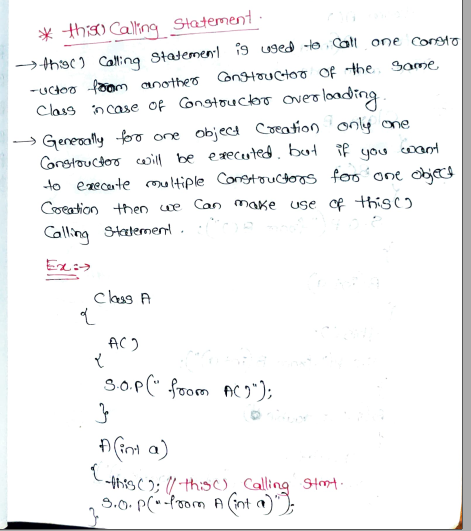 * this() Calling Statement.
→ this() Calling Statement is used to Call one constr
-uctor from another Constructor of the same
Class incase of Constructor overloading.
→ Generally for one object Creation only one
Constructor will be executed. but if you want
to execute multiple Constructors for one object
Creation then we can make use of this()
Calling Statement.
Ex:→
Class A
{
A()
{
S.O.P(" from A()");
}
A(int a)
{ this(); // this() Calling Stmt.
S.O.P("from A(int a)");
}